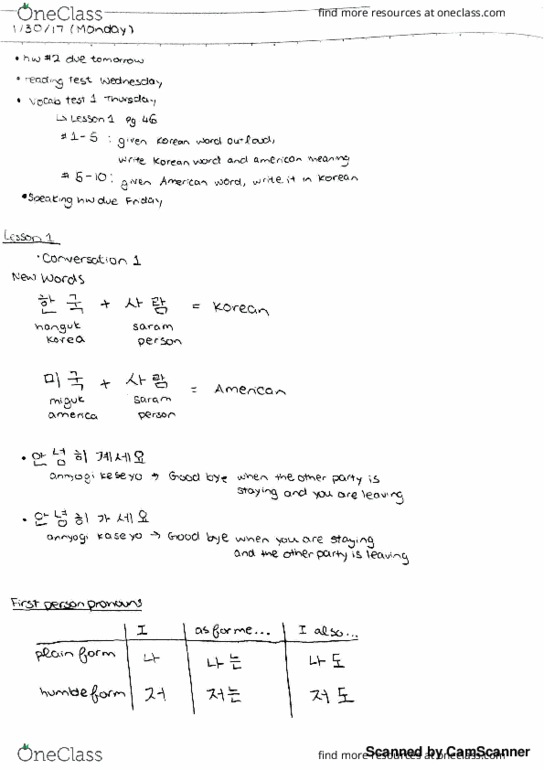 OneClass
find more resources at oneclass.com
1/30/17 (Monday)
• hw #2 due tomorrow
• reading test Wednesday
• vocab test 1 Thursday
↳ Lesson 1 pg 46
#1-5 : given Korean word outloud,
write Korean word and american meaning
# 6-10: given American word, write it in Korean
• Speaking hw due Friday
Lesson 1
• Conversation 1
New Words
한국 + 사람 = Korean
hanguk saram
korea person
미국 + 사람 = American
miguk saram
america person
• 안녕히 계세요
annyogi keseyo → Good bye when the other party is
staying and you are leaving
• 안녕히 가세요
annyogi kaseyo → Good bye when you are staying
and the other party is leaving
First person pronouns
I as for me... I also...
plain form 나 나는 나도
humble form 저 저는 저도
OneClass
find more resources at oneclass.com
Scanned by CamScanner